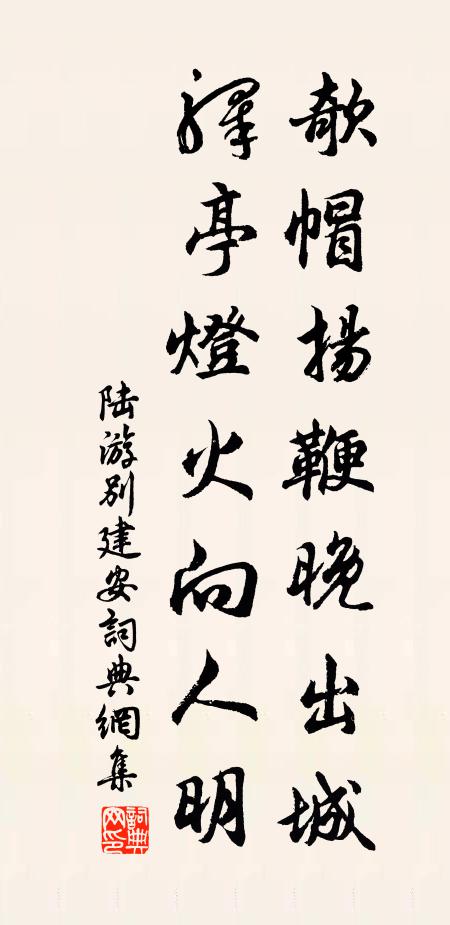 欹帽揚鞭晚出城
驛亭燈火向人明
陆游别建安詞典網集
詞典网印